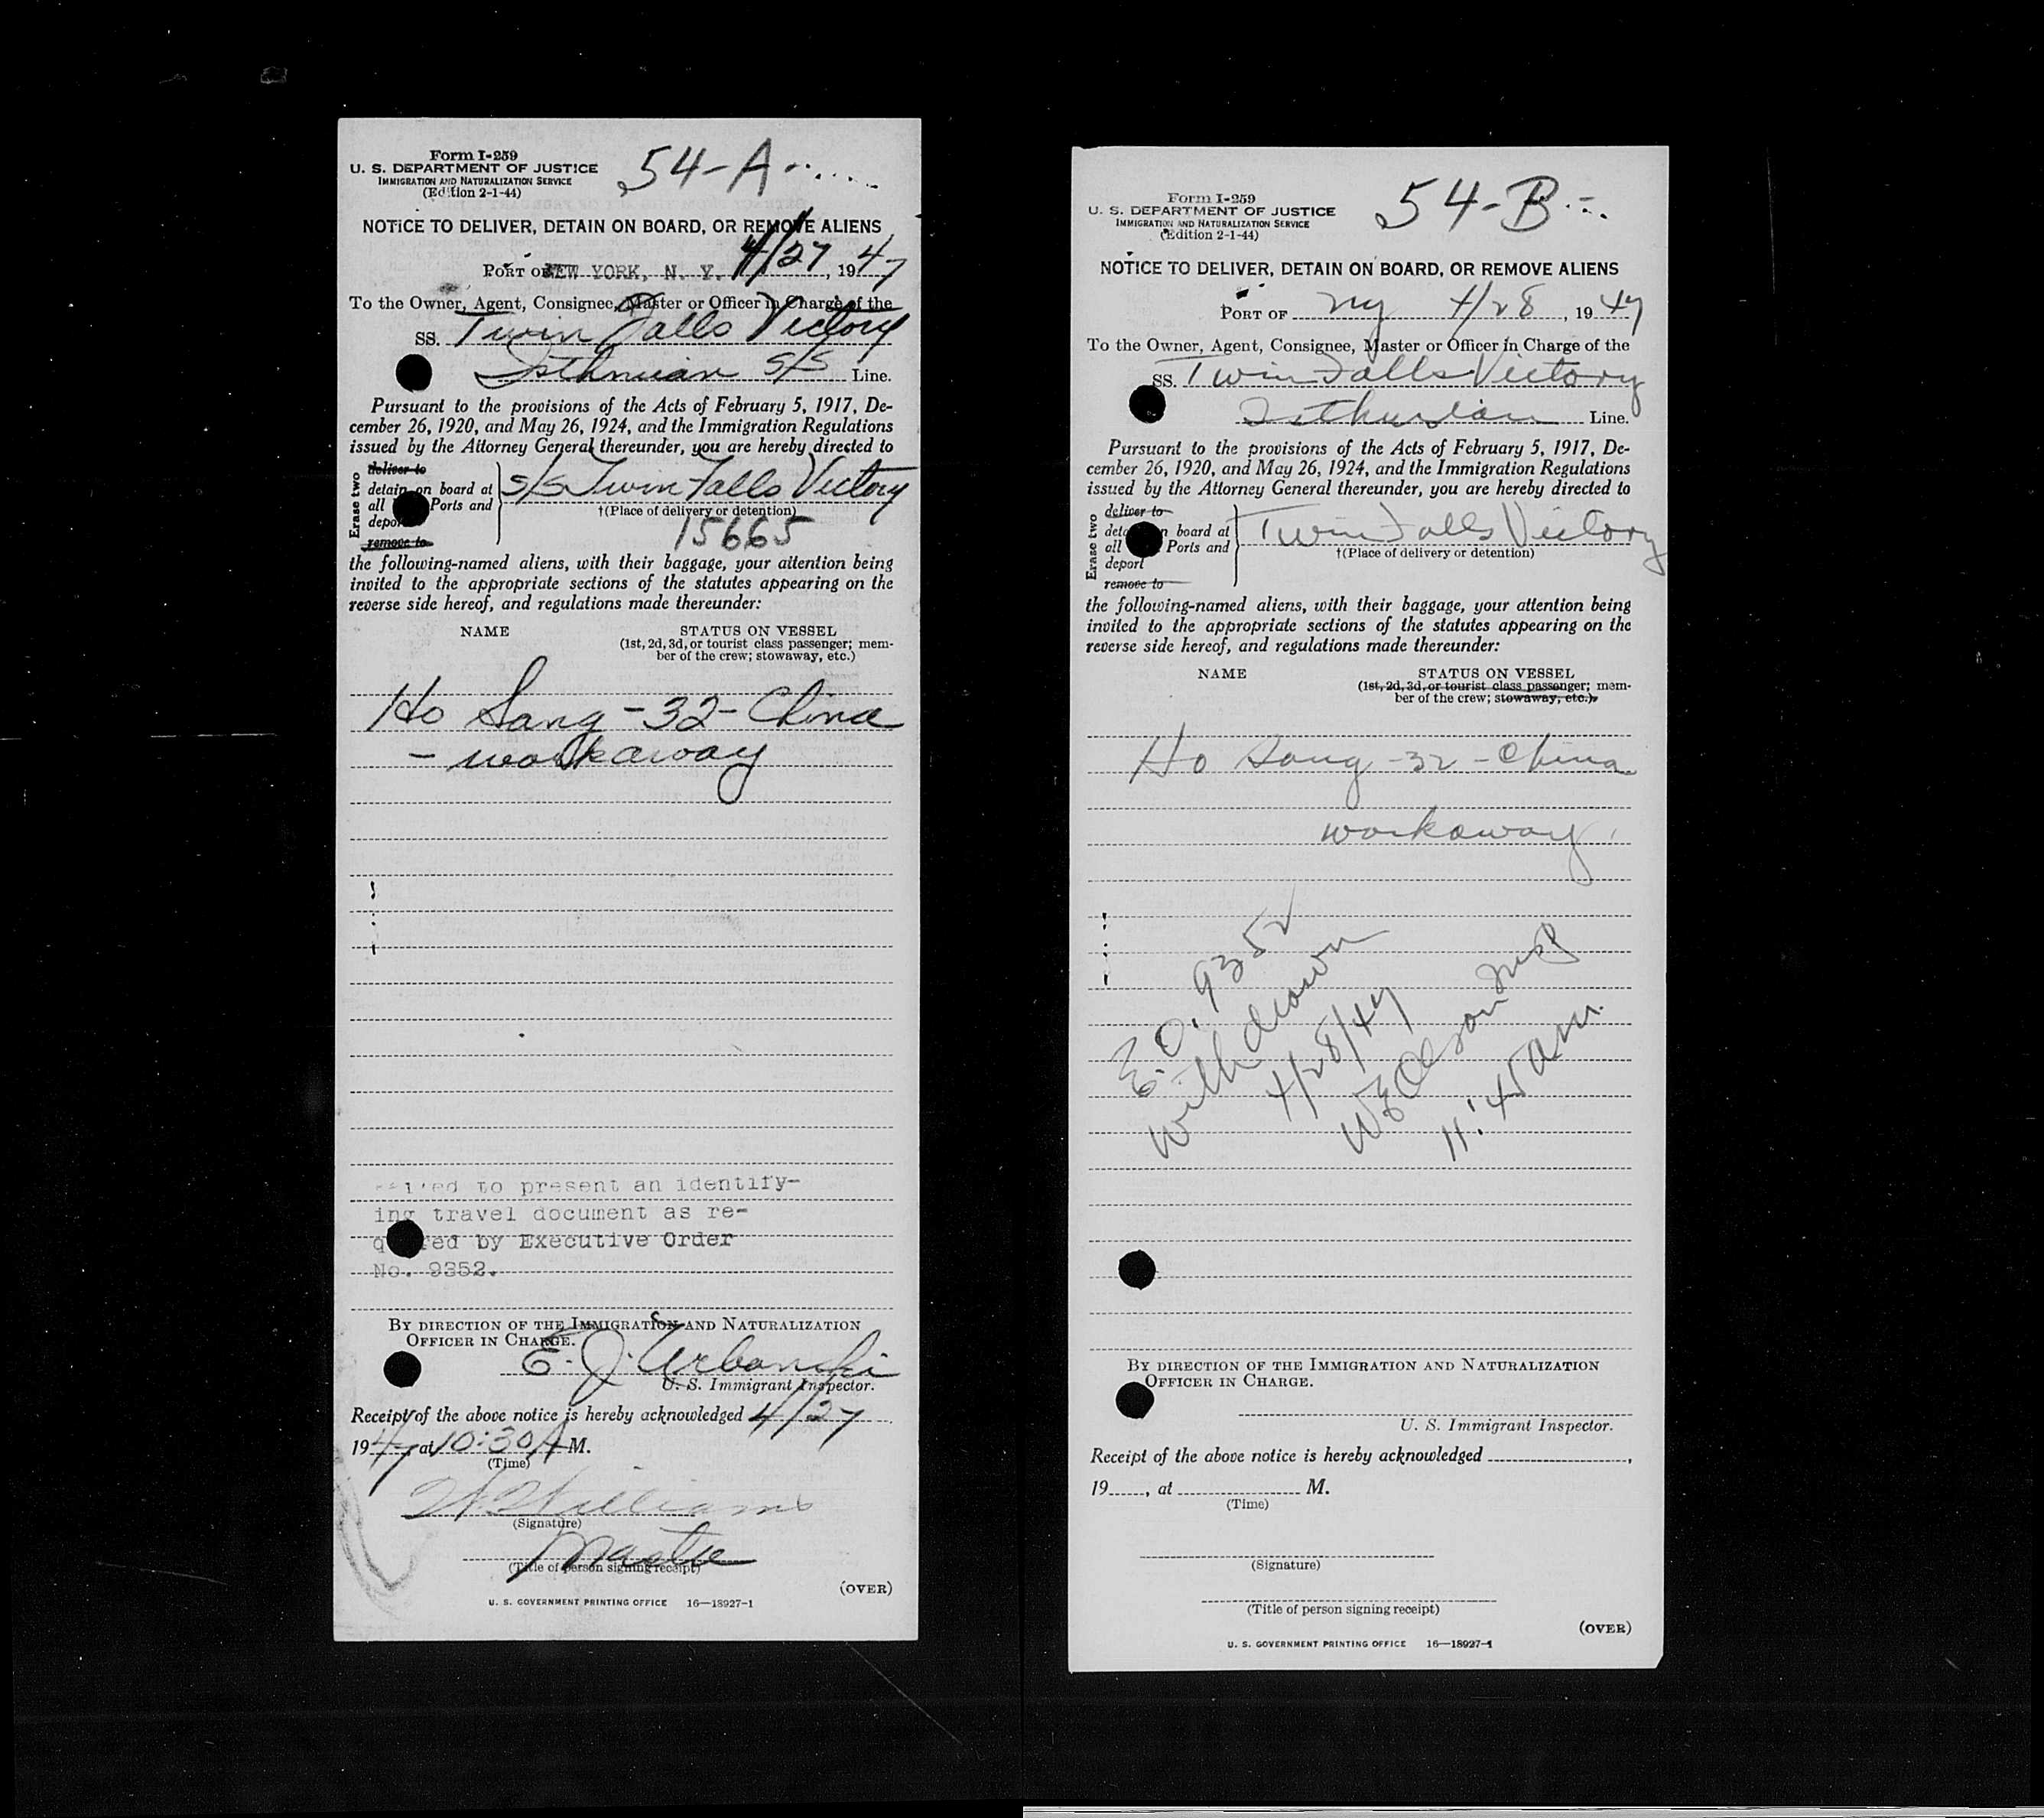 Form I-259
U. S. DEPARTMENT OF JUSTICE
IMMIGRATION AND NATURALIZATION SERVICE
(Edition 2-1-44)
54-A
NOTICE TO DELIVER, DETAIN ON BOARD, OR REMOVE ALIENS
PORT OF NEW YORK, N. Y. 4/27, 1947
To the Owner, Agent, Consignee, Master or Officer in Charge of the
SS. Twin Falls Victory
Isthmian S/S Line.
Pursuant to the provisions of the Acts of February 5, 1917, De-
cember 26, 1920, and May 26, 1924, and the Immigration Regulations
issued by the Attorney General thereunder, you are hereby directed to
Erase two
deliver to
detain on board at
all Ports and
deport
remove to
S/S Twin Falls Victory
†(Place of delivery or detention)
15665
the following-named aliens, with their baggage, your attention being
invited to the appropriate sections of the statutes appearing on the
reverse side hereof, and regulations made thereunder:
NAME STATUS ON VESSEL
(1st, 2d, 3d, or tourist class passenger; mem-
ber of the crew; stowaway, etc.)
Ho Sang - 32 - China
- workaway
to present an identify-
ing travel document as re-
quired by Executive Order
No. 9352.
BY DIRECTION OF THE IMMIGRATION AND NATURALIZATION
OFFICER IN CHARGE.
E. J. Urbanski
U. S. Immigrant Inspector.
Receipt of the above notice is hereby acknowledged 4/27,
1947, at 10:30 A M.
(Time)
W. Williams
(Signature)
Master
(Title of person signing receipt)
(OVER)
U. S. GOVERNMENT PRINTING OFFICE 16—18927-1
Form I-259
U. S. DEPARTMENT OF JUSTICE
IMMIGRATION AND NATURALIZATION SERVICE
(Edition 2-1-44)
54-B
NOTICE TO DELIVER, DETAIN ON BOARD, OR REMOVE ALIENS
PORT OF NY 4/28, 1947
To the Owner, Agent, Consignee, Master or Officer in Charge of the
SS. Twin Falls Victory
Isthmian Line.
Pursuant to the provisions of the Acts of February 5, 1917, De-
cember 26, 1920, and May 26, 1924, and the Immigration Regulations
issued by the Attorney General thereunder, you are hereby directed to
Erase two
deliver to
detain on board at
all Ports and
deport
remove to
Twin Falls Victory
†(Place of delivery or detention)
the following-named aliens, with their baggage, your attention being
invited to the appropriate sections of the statutes appearing on the
reverse side hereof, and regulations made thereunder:
NAME STATUS ON VESSEL
(1st, 2d, 3d, or tourist class passenger; mem-
ber of the crew; stowaway, etc.).
Ho Sang - 32 - China
workaway
E.O. 9352
withdrawn
4/28/47
WE Olson Insp
11:45 am.
BY DIRECTION OF THE IMMIGRATION AND NATURALIZATION
OFFICER IN CHARGE.
U. S. Immigrant Inspector.
Receipt of the above notice is hereby acknowledged ,
19 , at M.
(Time)
(Signature)
(Title of person signing receipt)
(OVER)
U. S. GOVERNMENT PRINTING OFFICE 16—18927-1